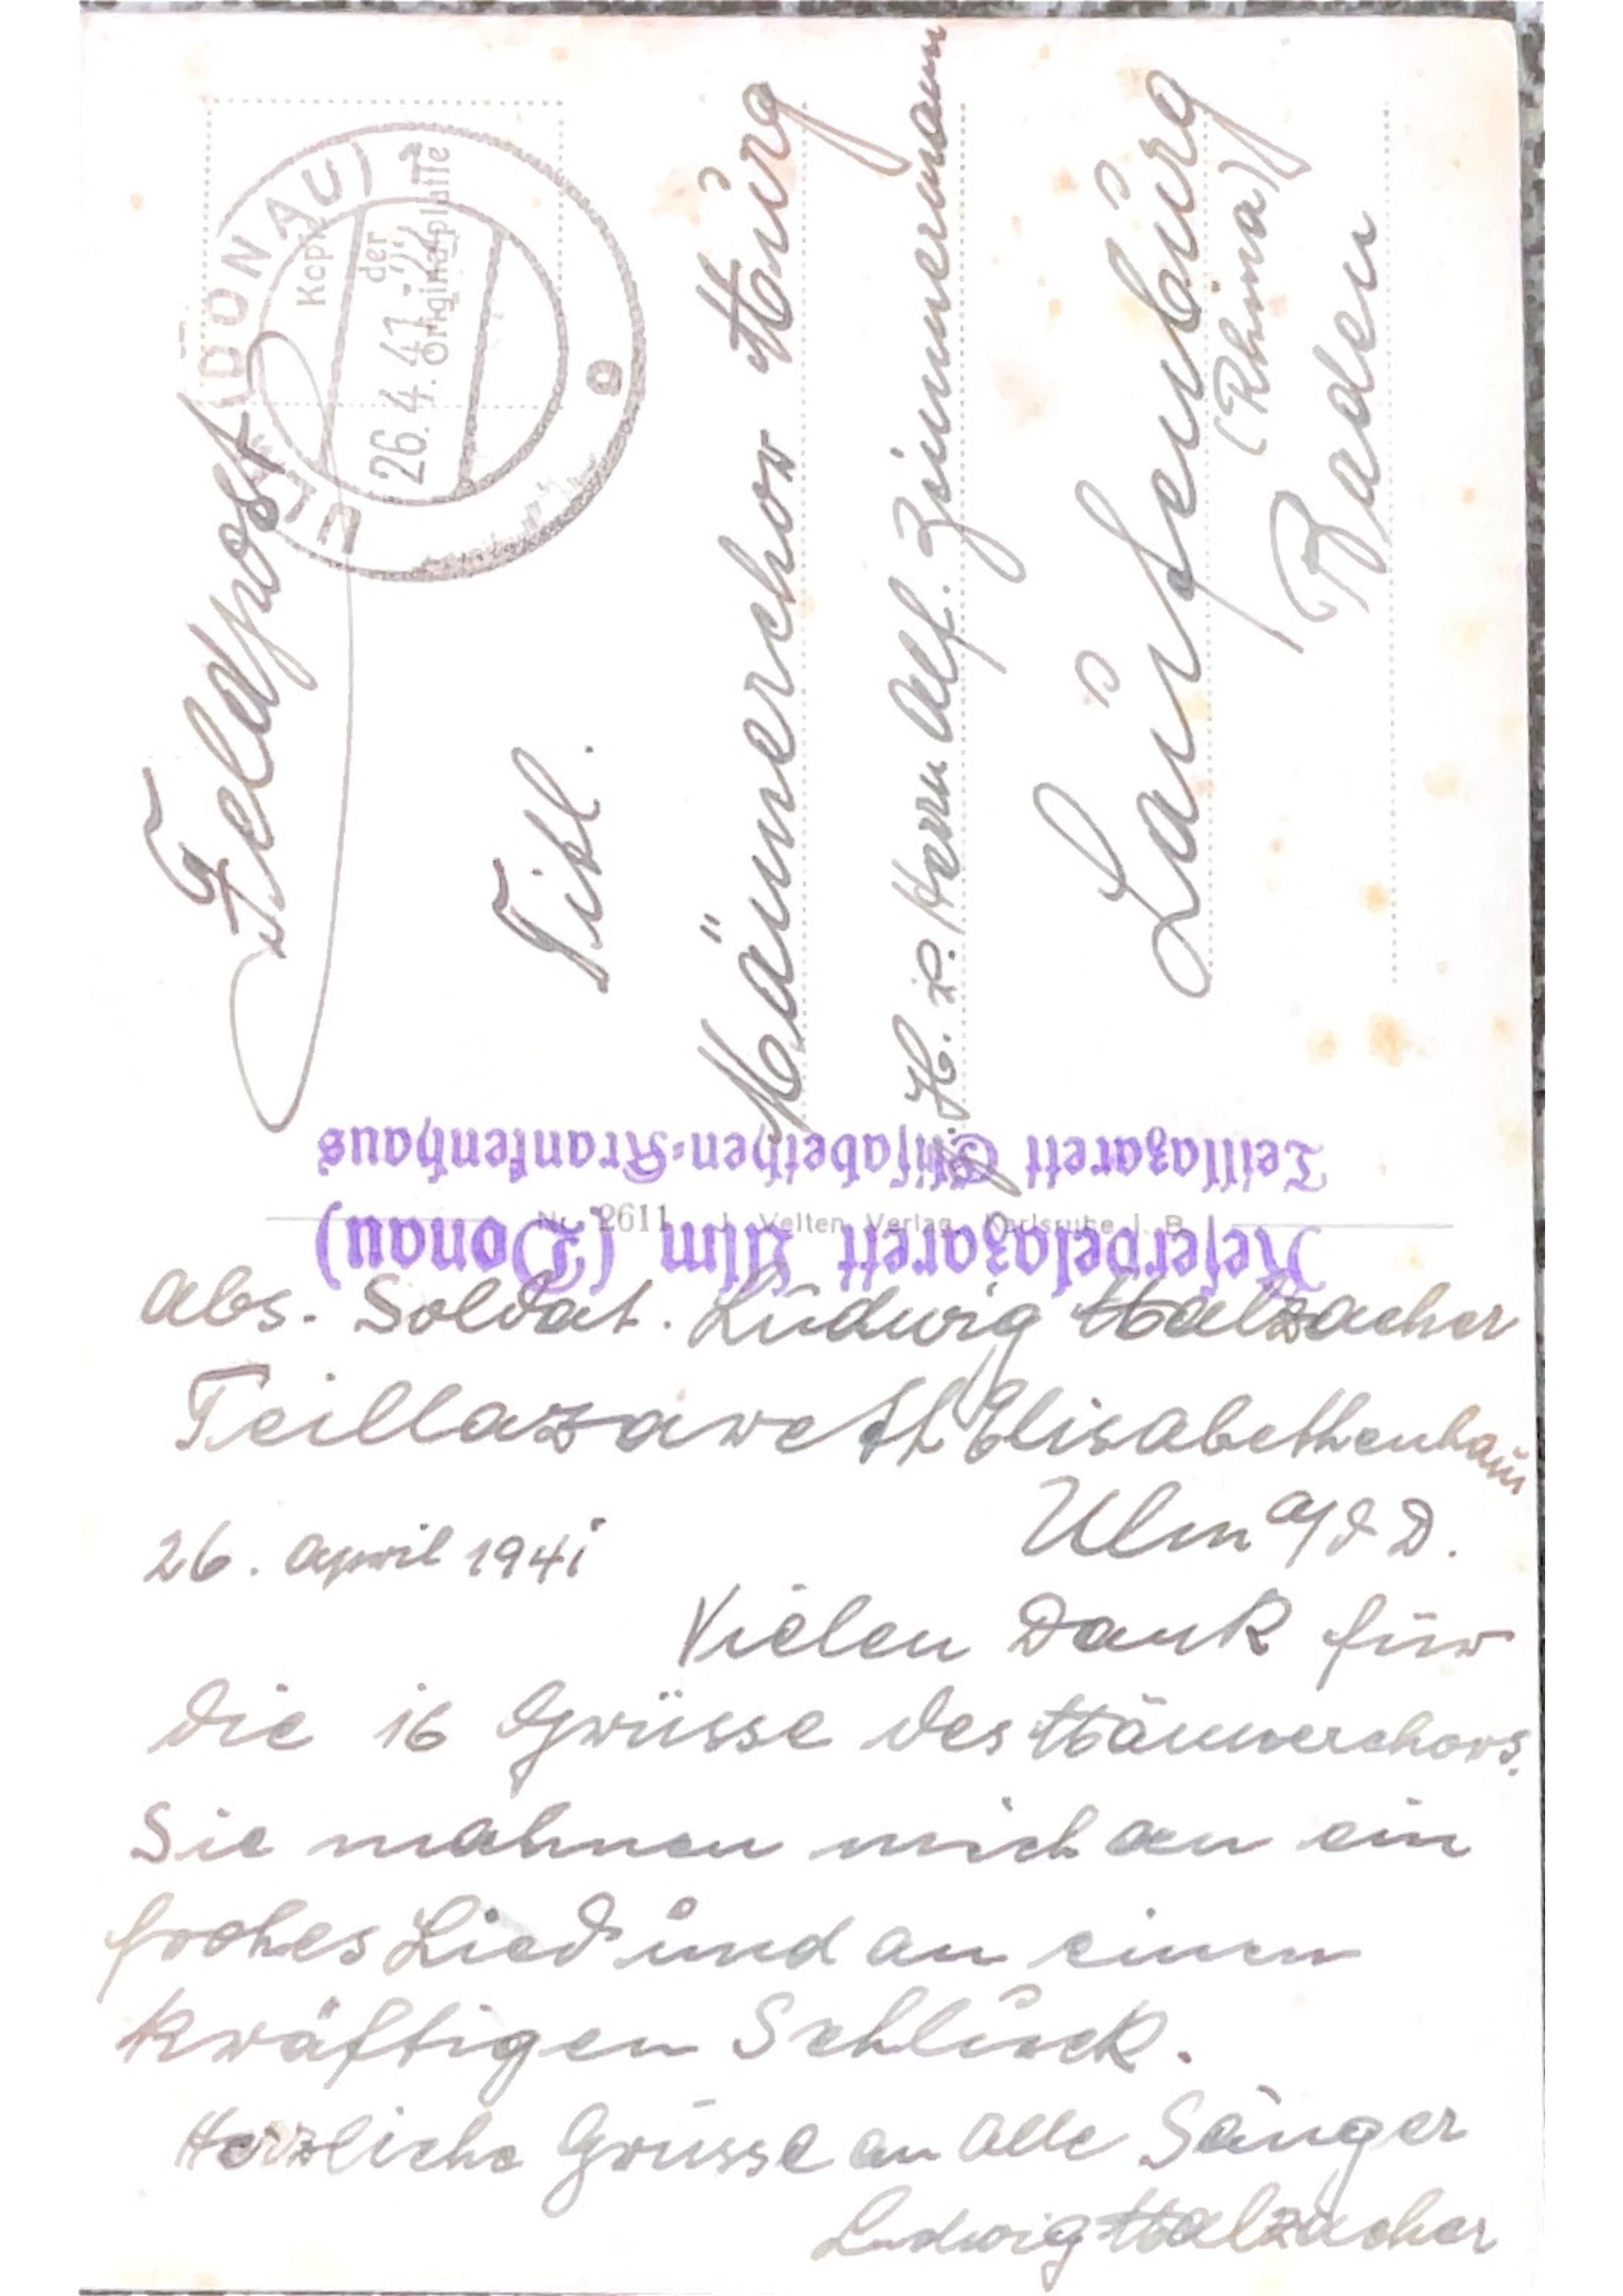 Feldpost
ULM (DONAU)
26.4.41.-22
Kopie
der
Originalplatte
Titl.
Männerchor Murg
Herrn Alf. Zimmermann
Laufenburg
(Rhina)
Baden
Reservelazarett Ulm (Donau)
Teillazarett Elisabethen-Krankenhaus
Nr. 2611 J. Velten, Verlag, Karlsruhe i. B.
Abs. Soldat. Ludwig Malzacher
Teillazarett Elisabethenhaus
Ulm a/d D.
26. April 1941
Vielen Dank für
die 16 Grüsse des Männerchors.
Sie mahnen mich an ein
frohes Lied und an einen
kräftigen Schluck.
Herzliche Grüsse an alle Sänger
Ludwig Malzacher